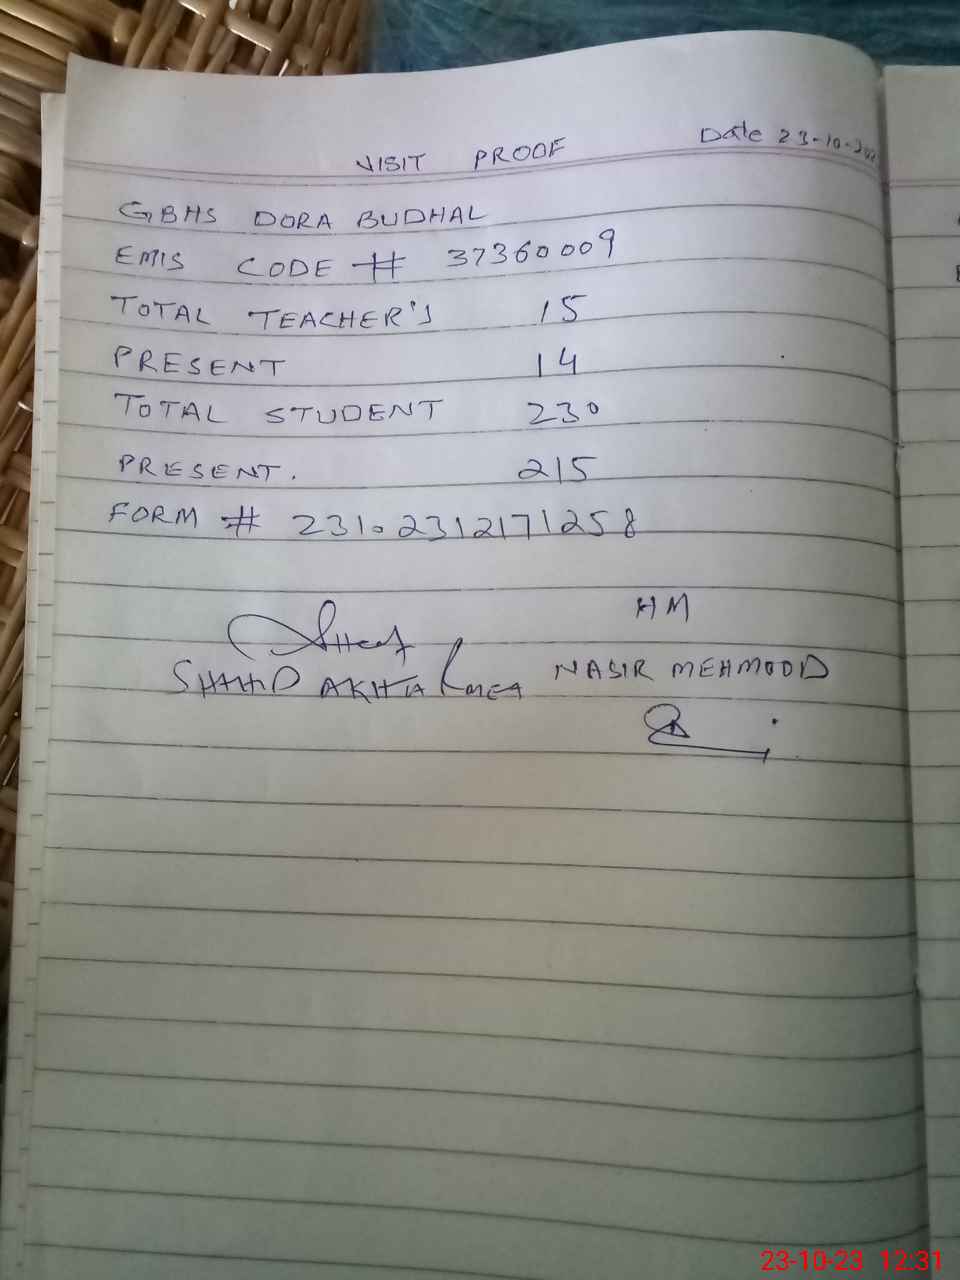 VISIT PROOF Date 23-10-202
GBHS DORA BUDHAL
EMIS CODE # 37360009
TOTAL TEACHER'S 15
PRESENT 14
TOTAL STUDENT 230
PRESENT. 215
FORM # 23102312171258
HM
SHAHID NASIR MEHMOOD
23-10-23 12:31